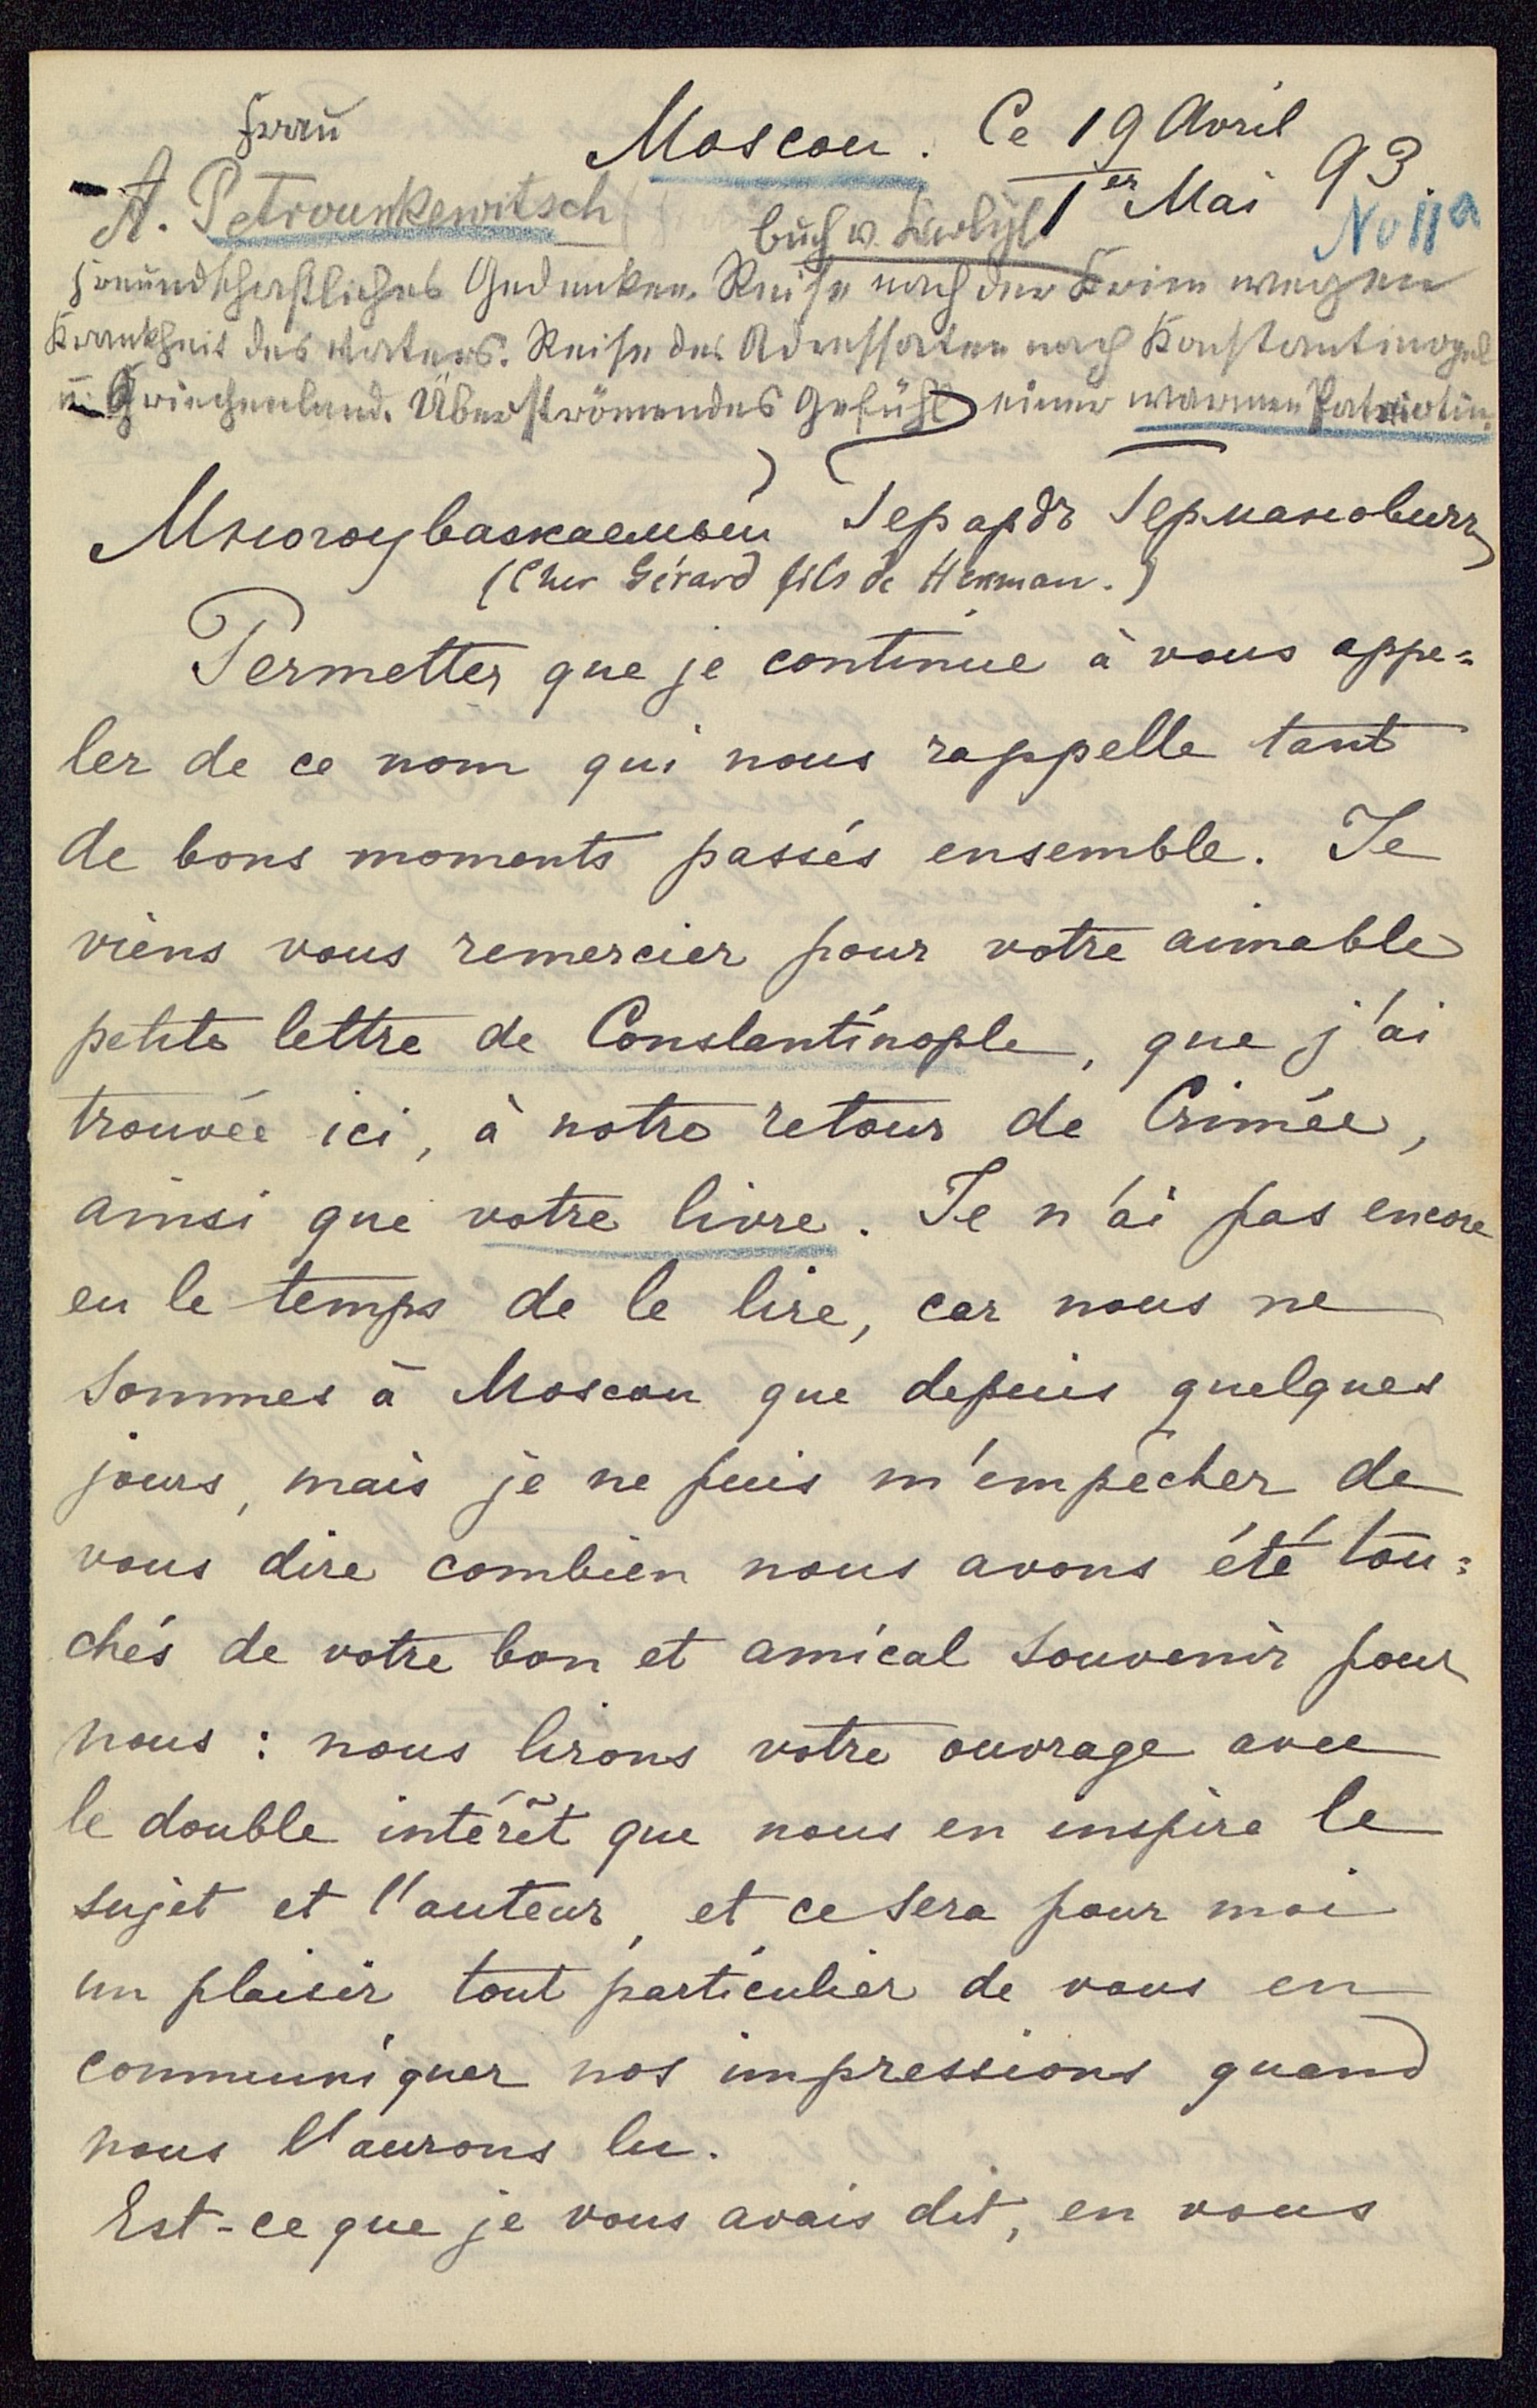 Frau
Moscou. Ce 19 Avril
1er Mai 93
A. Petrounkewitsch
No 11a
Buch v.
Freundschaftliches Gedenken. Reise nach der Krim wegen
Krankheit des Vaters. Reise des Adressaten nach Konstantinopel
u. Griechenland. Überströmendes Gefühl einer warmen Patriotin.
Многоуважаемый Герардъ Германовичъ
(Cher Gérard fils de Herman.)
Permettez que je continue à vous appe=
ler de ce nom qui nous rappelle tant
de bons moments passés ensemble. Je
viens vous remercier pour votre aimable
petite lettre de Constantinople, que j'ai
trouvée ici, à notre retour de Crimée,
ainsi que votre livre. Je n'ai pas encore
eu le temps de le lire, car nous ne
sommes à Moscou que depuis quelques
jours, mais je ne puis m'empêcher de
vous dire combien nous avons été tou=
chés de votre bon et amical souvenir pour
nous : nous lirons votre ouvrage avec
le double intérêt que nous en inspire le
sujet et l'auteur, et ce sera pour moi
un plaisir tout particulier de vous en
communiquer nos impressions quand
nous l'aurons lu.
Est-ce que je vous avais dit, en vous